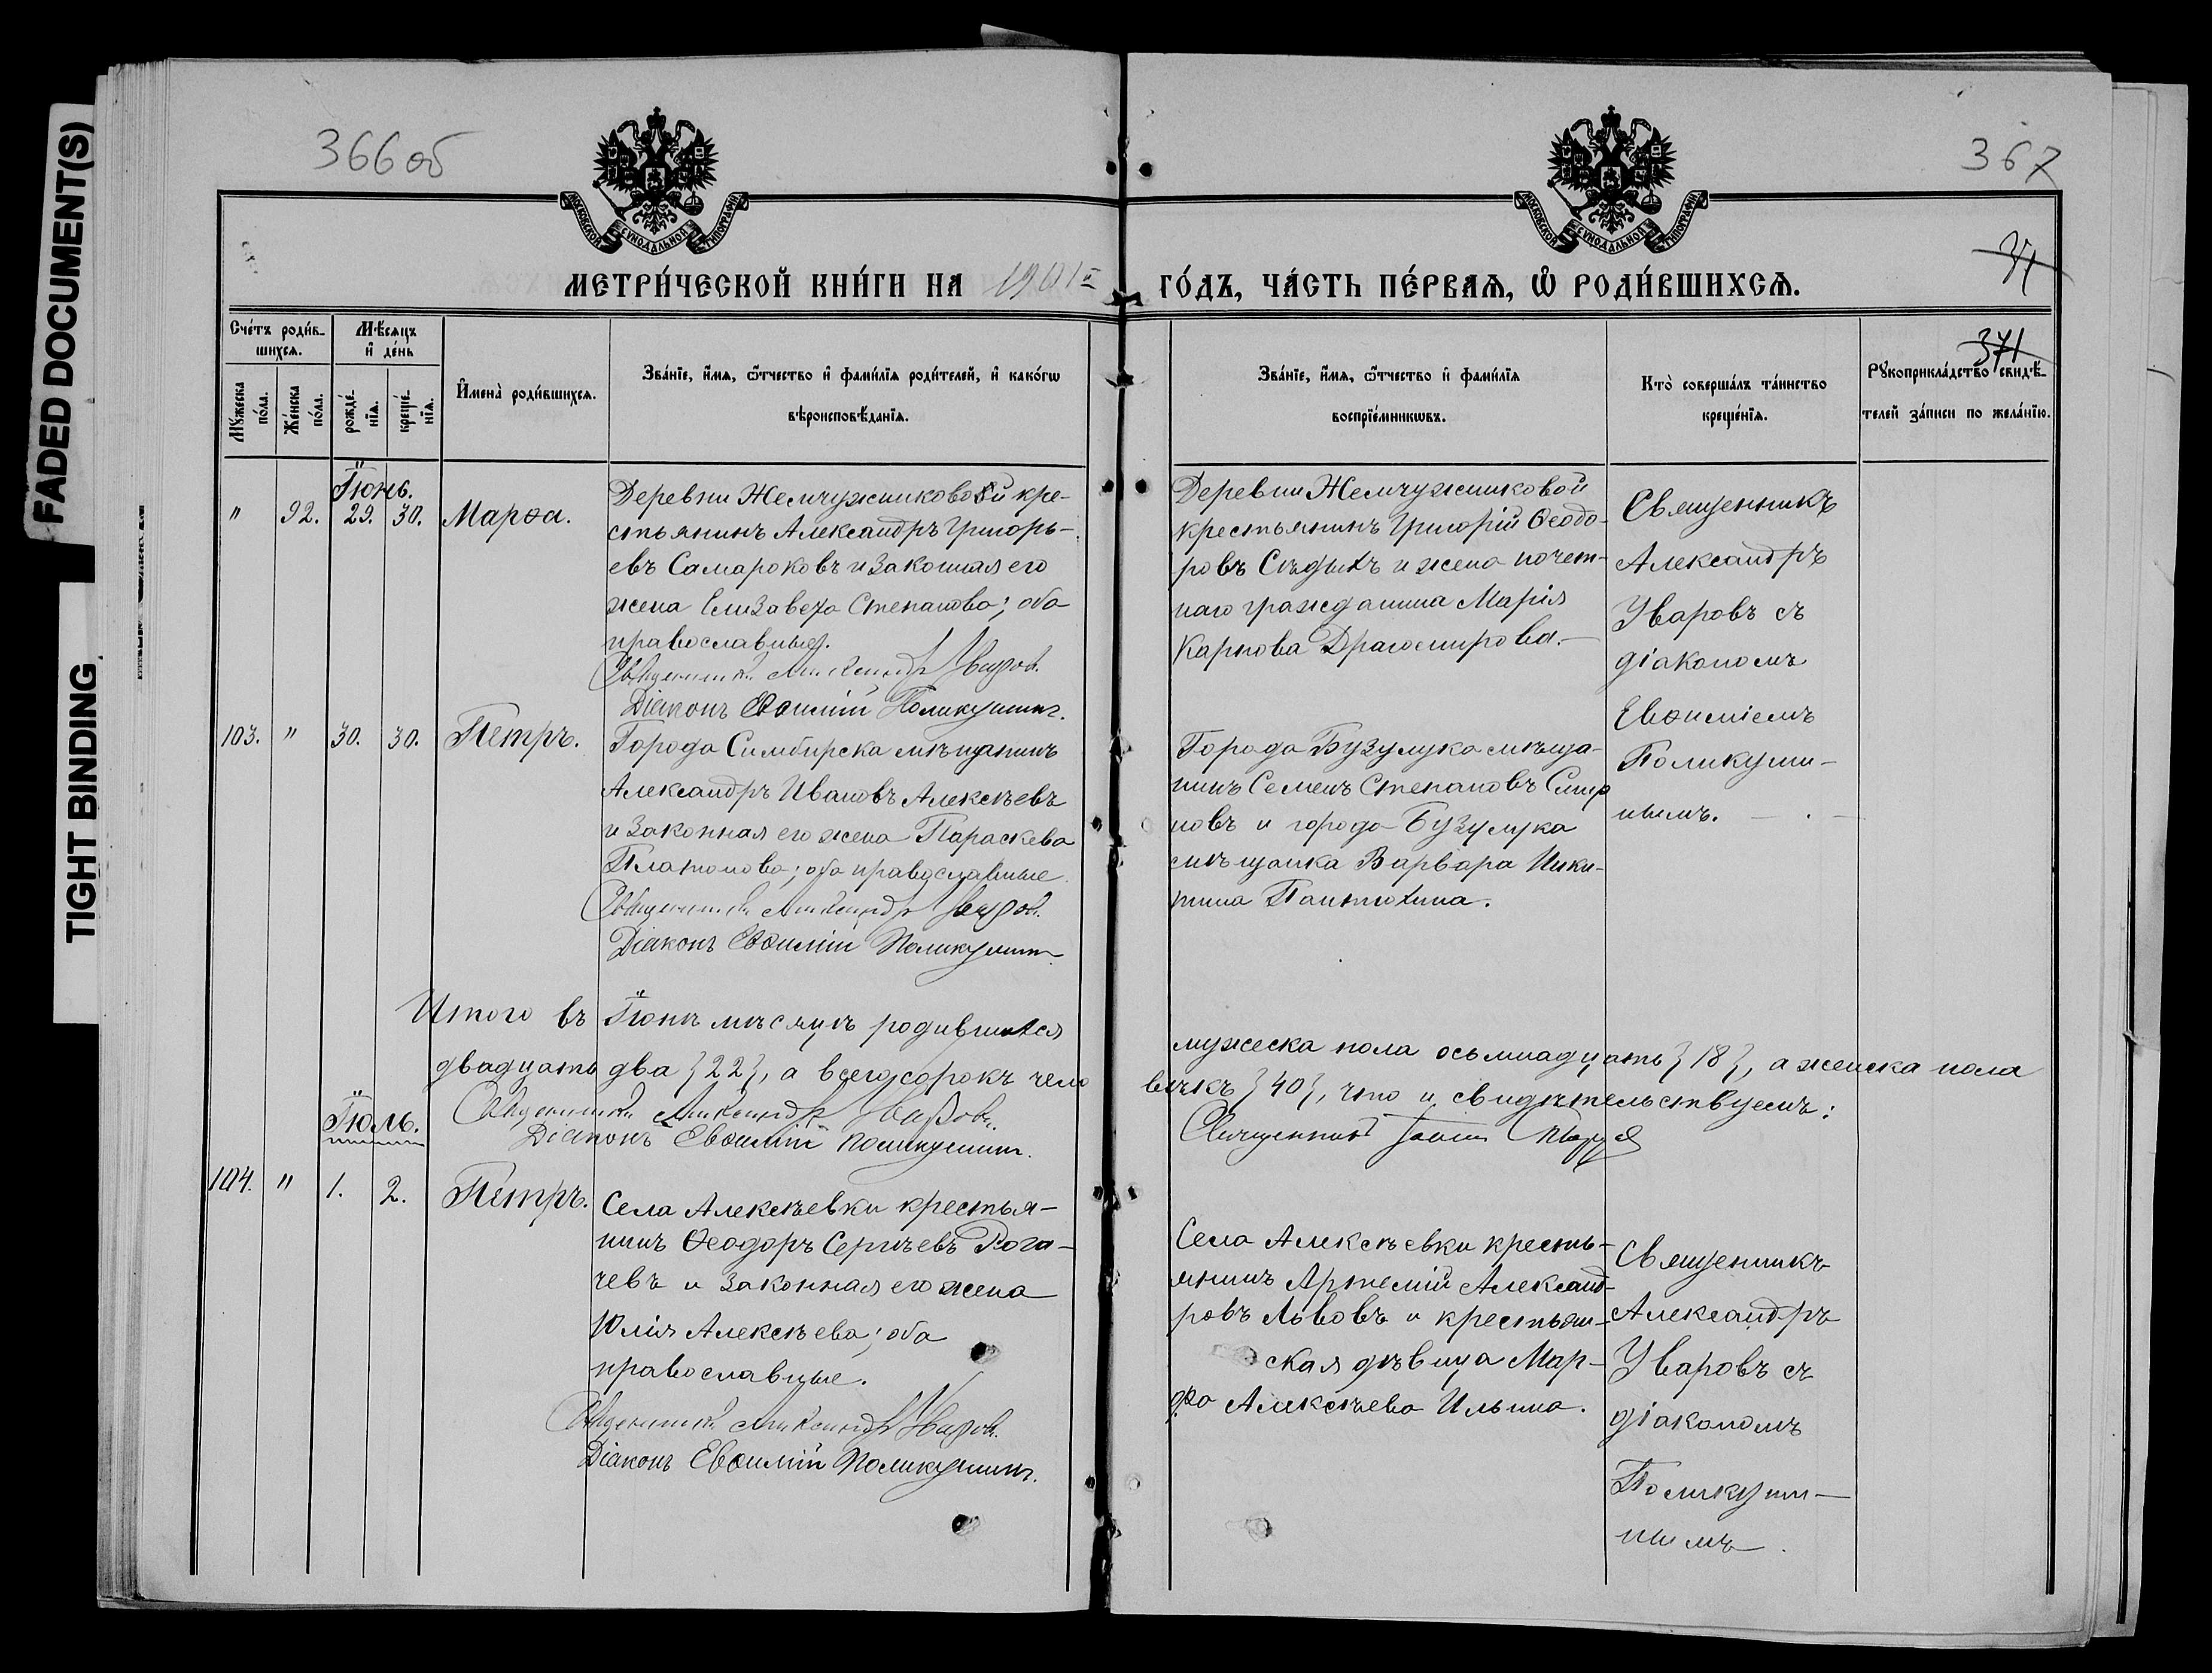 FADED DOCUMENT(S)
TIGHT BINDING
366об
367
МОСКОВСКОЙ СѴНОДАЛЬНОЙ ТИПОГРАФІИ
МОСКОВСКОЙ СѴНОДАЛЬНОЙ ТИПОГРАФІИ
МЕТРИ́ЧЕСКОЙ КНИ́ГИ НА 1901й ГО́ДЪ, ЧА́СТЬ ПЕ́РВАѦ, Ѽ РОДИ́ВШИХСѦ.
371
Сче́тъ роди́в-
шихсѧ.
Мꙋжеска по́ла.
Же́нска по́ла.
Мѣ́сѧцъ
и҆ де́нь
рожде́-
нїѧ.
креще́-
нїѧ.
И҆мена̀ роди́вшихсѧ.
Зва́нїе, и҆́мѧ, ѻ҆́тчество и҆ фами́лїѧ роди́телей, и҆ како́гѡ
вѣроисповѣ́данїѧ.
Зва́нїе, и҆́мѧ, ѻ҆́тчество и҆ фами́лїѧ
воспрїе́мникѡвъ.
Кто̀ соверша́лъ та́инство
креще́нїѧ.
Рꙋкоприкла́дство свидѣ́-
телей за́писи по жела́нїю.
Іюнь.
" 92. 29. 30. Марѳа.
Деревни Жемчужниковой кре-
стьянинъ Александръ Григорь-
евъ Самароковъ и законная его
жена Елизавета Степанова; оба
православные.
Священникъ Александръ Уваровъ.
Діаконъ Евѳимій Поликушинъ.
Деревни Жемчужниковой
крестьянинъ Григорій Ѳеодо-
ровъ Сѣдыхъ и жена почет-
наго гражданина Марія
Карпова Драгомирова.—
Священникъ
Александръ
Уваровъ съ
діакономъ
Евѳиміемъ
Поликуши-
нымъ.
103. " 30. 30. Петръ.
Города Симбирска мѣщанинъ
Александръ Ивановъ Алексѣевъ
и законная его жена Параскева
Платонова; оба православные
Священникъ Александръ Уваровъ.
Діаконъ Евѳимій Поликушинъ
Города Бузулука мѣща-
нинъ Семенъ Степановъ Смир
новъ и города Бузулука
мѣщанка Варвара Ники-
тина Пантюхина.
Итого въ Іюнѣ мѣсяцѣ родившихся мужеска пола осьмнадцать {18}, а женска пола
двадцать два {22}, а всего сорокъ чело
вѣкъ {40}, что и свидѣтельствуемъ:
Священникъ Александръ Уваровъ.
Діаконъ Евѳимій Поликушинъ.
Священникъ Іоаннъ
Іюль.
104. " 1. 2. Петръ.
Села Алексѣевки крестья-
нинъ Ѳеодоръ Сергѣевъ Рога-
чевъ и законная его жена
Юлія Алексѣева; оба
православные.
Священникъ Александръ Уваровъ.
Діаконъ Евѳимій Поликушинъ.
Села Алексѣевки кресть-
янинъ Артемій Александ-
ровъ Львовъ и крестьян-
ская дѣвица Мар-
ѳа Алексѣева Ильина.
Священникъ
Александръ
Уваровъ съ
діакономъ
Поликуши-
нымъ.